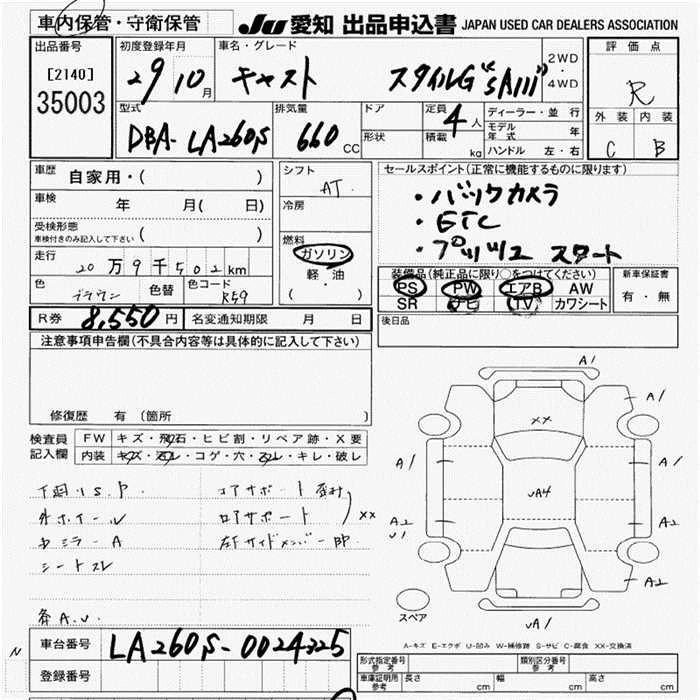 車内保管・守衛保管
JU 愛知 出品申込書 JAPAN USED CAR DEALERS ASSOCIATION
出品番号
[2140]
35003
初度登録年月
29 10月
車名・グレード
キャスト スタイルG"SAIII"
2WD
・
4WD
評価点
R
外装 内装
C B
型式
DBA-LA260S
排気量
660 CC
ドア
形状
定員 4人
積載 kg
ディーラー・並行
モデル年式 年
ハンドル 左・右
車歴
自家用・( )
車検 年 月( 日)
受検形態
車検付きのみ記入して下さい ( )
走行
20万9千502km
色 ブラウン
色替
色コード R59
シフト
AT
冷房
燃料
ガソリン
軽・油
( )
セールスポイント(正常に機能するものに限ります)
・バックカメラ
・ETC
・プッシュスタート
装備品(純正品に限り○をつけてください)
PS PW エアB AW
SR ナビ TV カワシート
新車保証書
有・無
R券 8,550円
名変通知期限 月 日
後日品
注意事項申告欄(不具合内容等は具体的に記入して下さい)
修復歴 有 (箇所
検査員
記入欄
FW キズ・飛石・ヒビ割・リペア跡・X要
内装 キズ・汚レ・コゲ・穴・スレ・キレ・破レ
下回りS.P.
外ホイール
ドミラーA
シートスレ
各A.U.
コアサポート
ロアサポート
左Fサイドメンバー
XX
A1
XX
A1
A1
A1
UA4
A2
U1
A2
A2
UA1
スペア
A-キズ E-エクボ U-凹み W-補修跡 S-サビ C-腐食 XX-交換済
N
車台番号 LA260S-0024325
登録番号
形式指定番号 参考
類別区分番号 参考
車庫証明用 参考
長さ cm 幅 cm 高さ cm